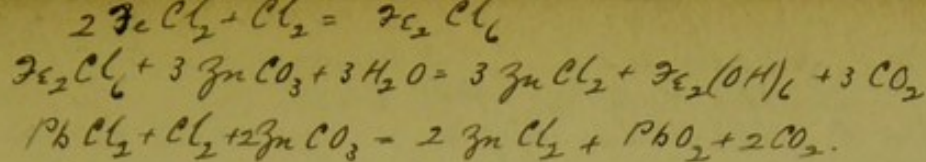 2 FeCl₂ + Cl₂ = Fe₂Cl₆
Fe₂Cl₆ + 3 ZnCO₃ + 3H₂O = 3 ZnCl₂ + Fe₂(OH)₆ + 3 CO₂
PbCl₂ + Cl₂ + 2ZnCO₃ = 2 ZnCl₂ + PbO₂ + 2CO₂.